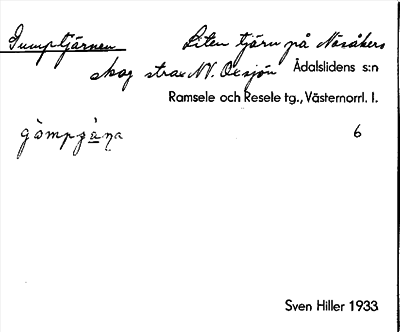 Gumptjärnen Liten tjärn på Näsåkers
skog strax NV. Oxsjön Ådalslidens s:n
Ramsele och Resele tg., Västernorrl. l.
6
Sven Hiller 1933